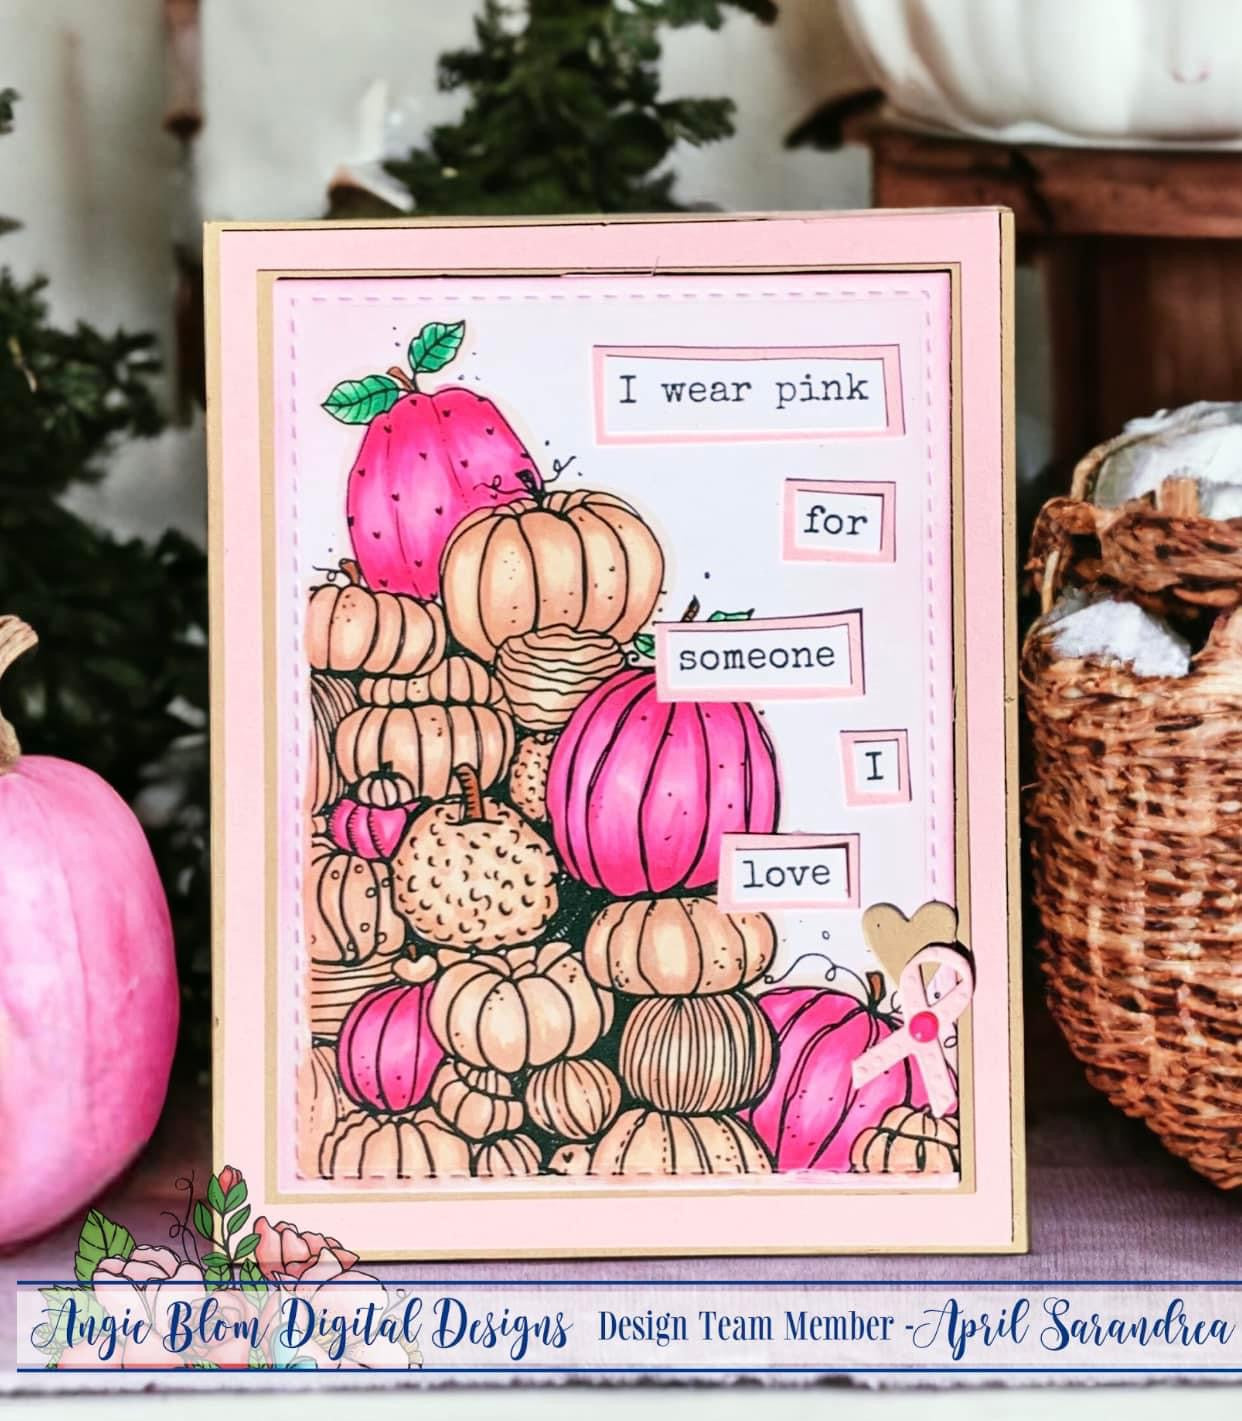 I wear pink
for
someone
I
love
Angie Blom Digital Designs Design Team Member - April Sarandrea